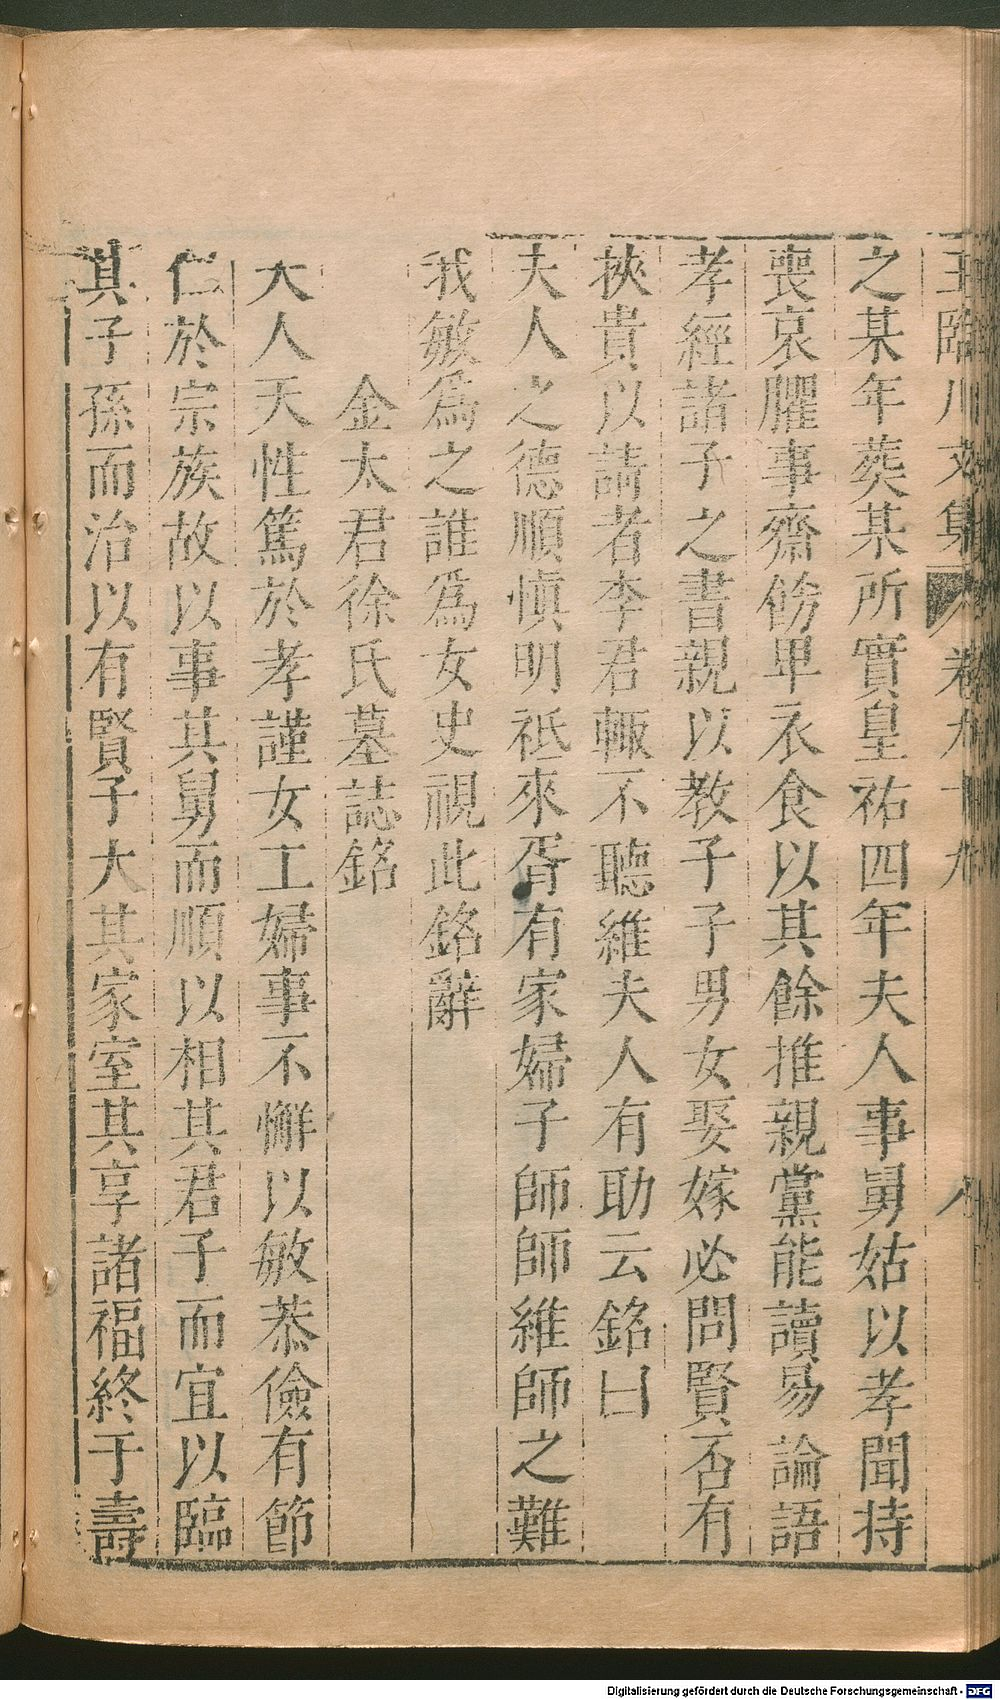 王臨川文集 卷九十九 八
之某年葬某所實皇祐四年夫人事舅姑以孝聞持
喪哀臞事齋飭卑衣食以其餘推親黨能讀易論語
孝經諸子之書親以教子子男女娶嫁必問賢否有
挾貴以請者李君輙不聽維夫人有助云銘曰
夫人之德順慎明祗來胥有家婦子師師維師之難
我敏為之誰為女史視此銘辭
金太君徐氏墓誌銘
夫人天性篤於孝謹女工婦事不懈以敏恭儉有節
仁於宗族故以事其舅而順以相其君子而宜以臨
其子孫而治以有賢子大其家室其享諸福終于壽
Digitalisierung gefördert durch die Deutsche Forschungsgemeinschaft - DFG